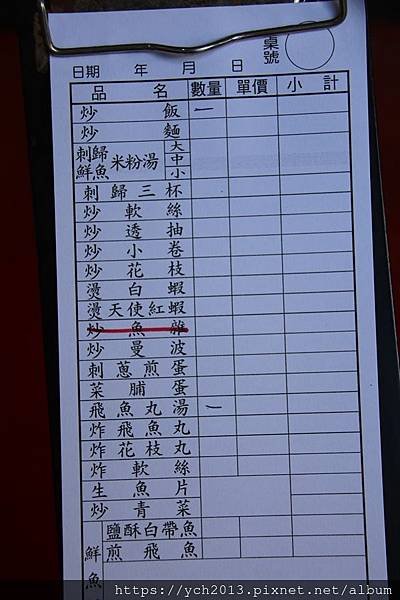 桌號
日期 年 月 日
品名 數量 單價 小計
炒飯 一
炒麵
刺歸鮮魚米粉湯 大 中 小
刺歸三杯
炒軟絲
炒透抽
炒小卷
炒花枝
燙白蝦
燙天使紅蝦
炒魚雜
炒曼波
刺蔥煎蛋
菜脯蛋
飛魚丸湯 一
炸飛魚丸
炸花枝丸
炸軟絲
生魚片
炒青菜
鮮魚
鹽酥白帶魚
煎飛魚
https://ych2013.pixnet.net/album